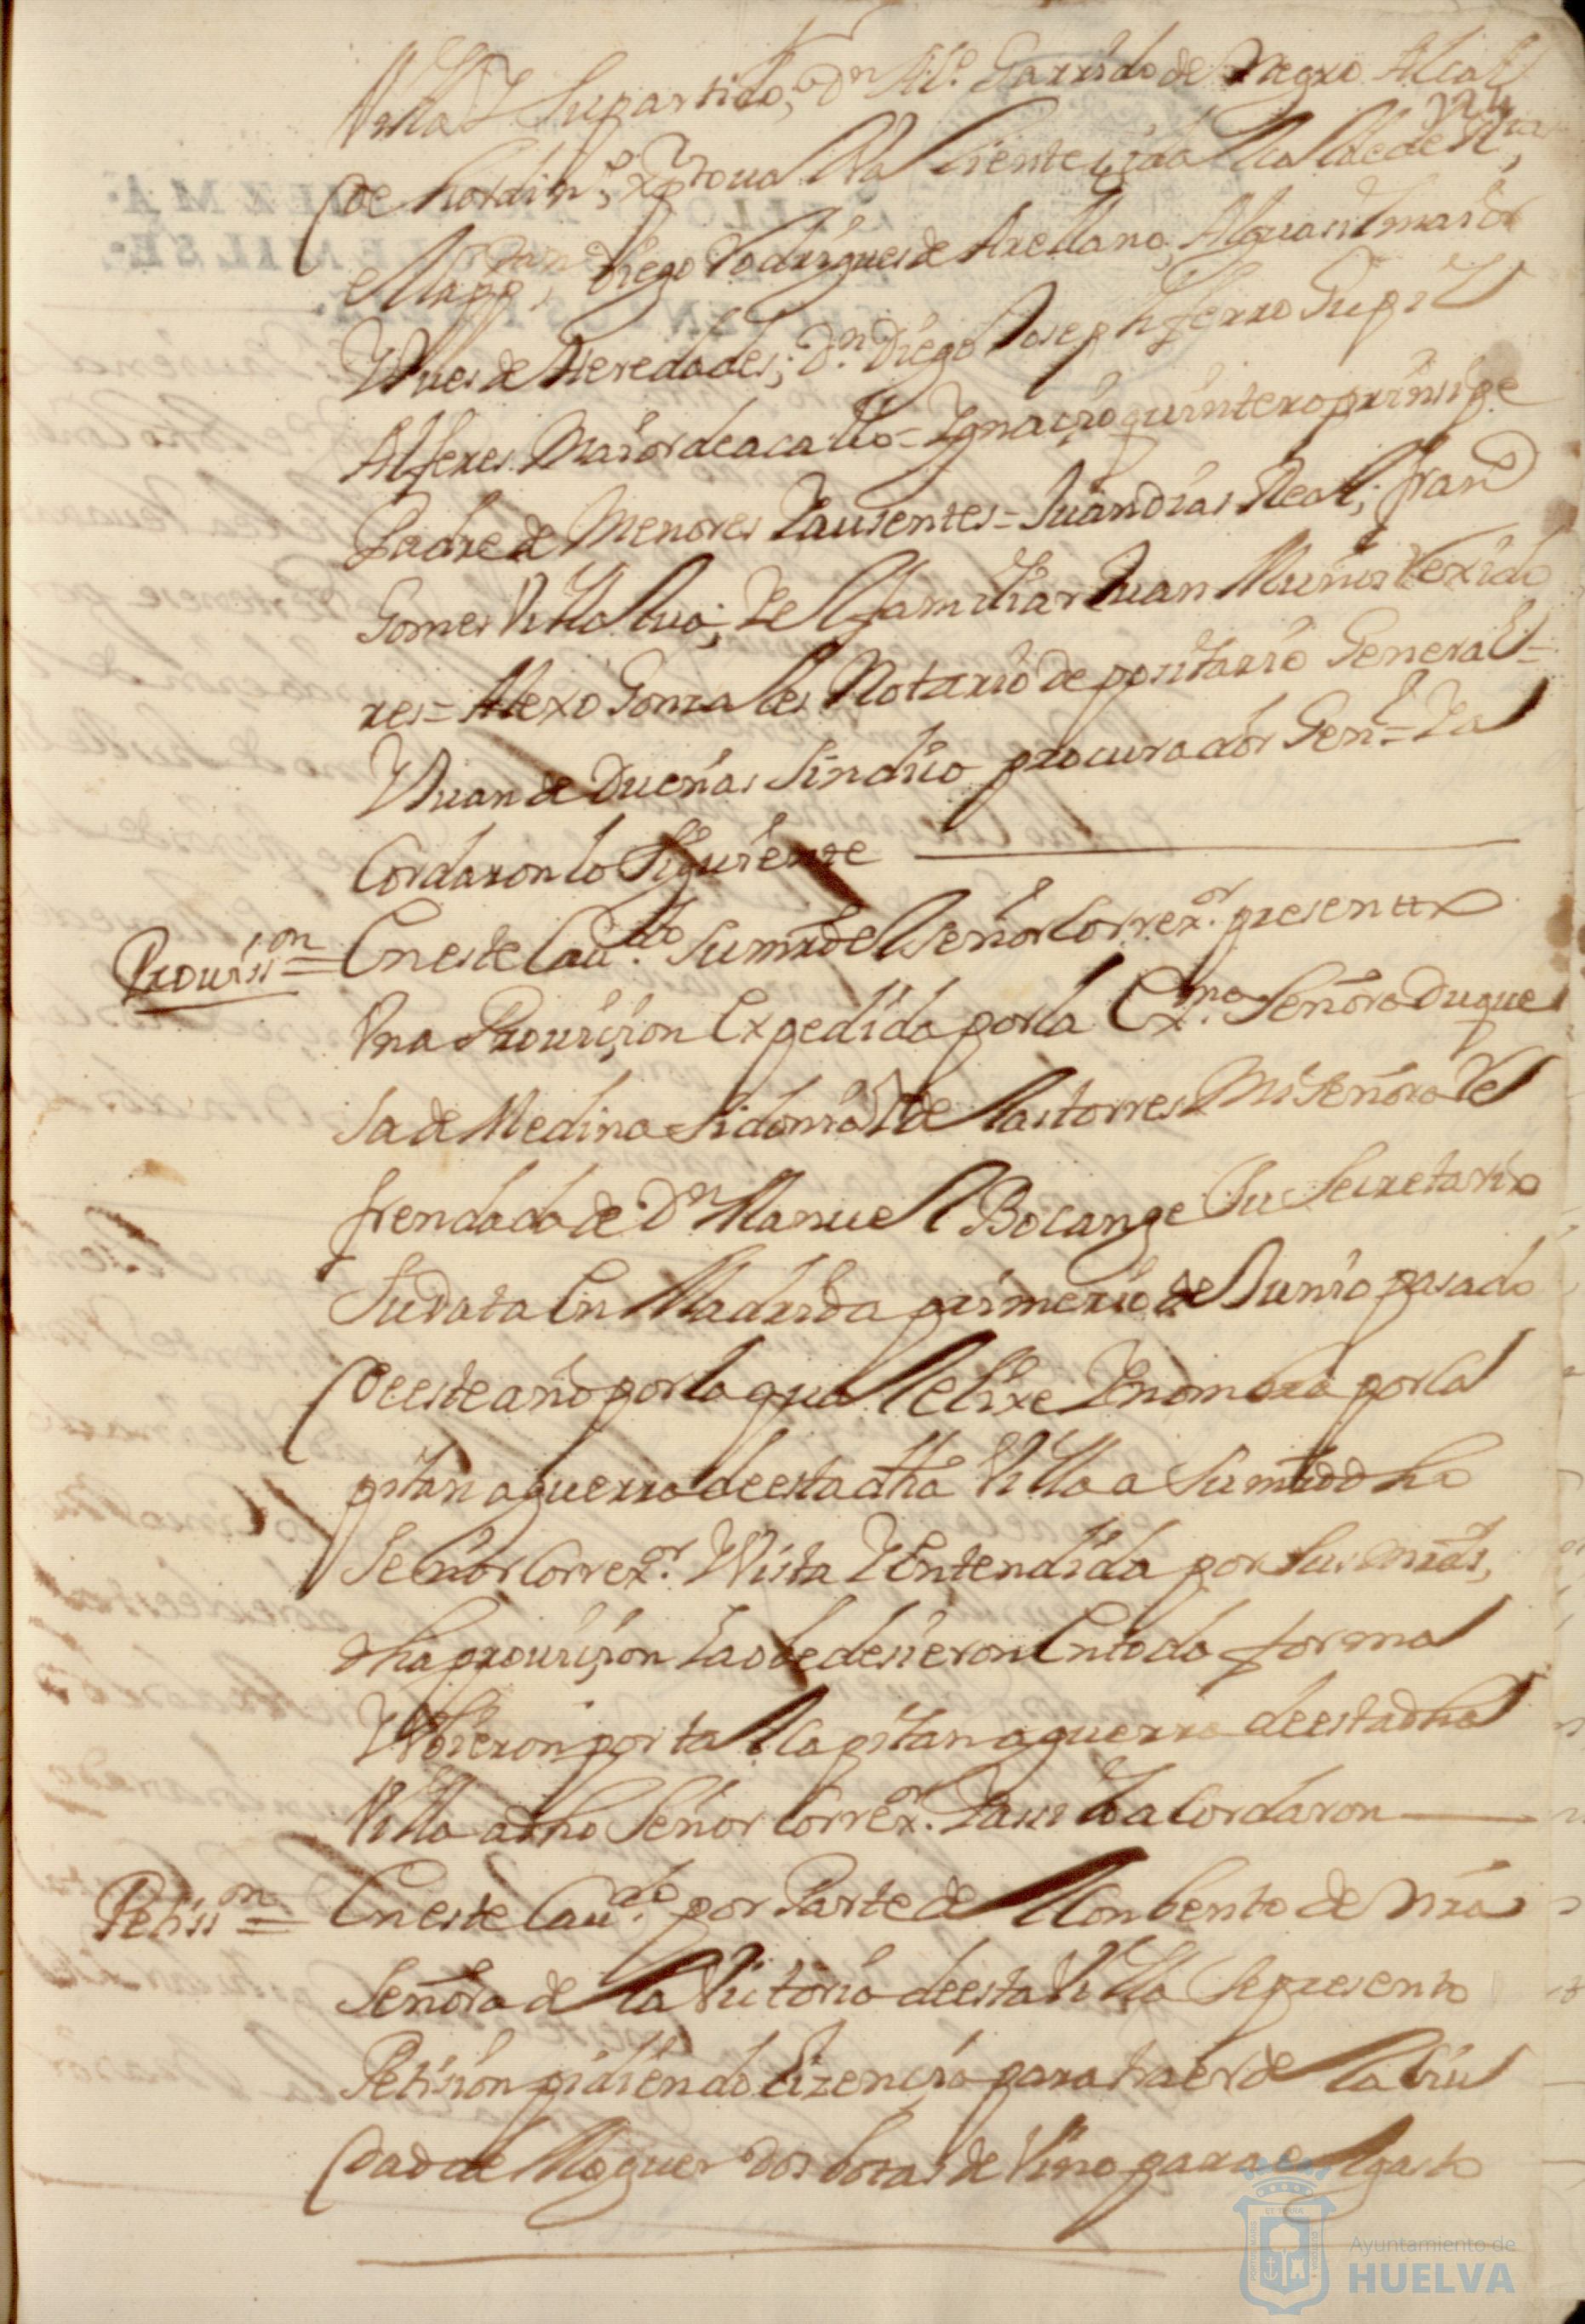 Villa Y Su partido, Dn Alo. Garrido de Negro Alcal
224
de hordino., xptoual Va liente
ella pp, Diego Rodrigues de Arellano, Alguasil maior
Y Jues de Heredades; Dn. Diego Joseph ferro
Alferes Maior de acauo = Ygnaçio quintero prinsipe
Padre de Menores Y ausentes = Juan Dias Real, franco
Gomes Villalua; Y el familiar Juan Muños Rexido
res = Alexo Gonsales Notario depositario General =
Y Juan de Dueñas Sindico procurador Genl = Y a
Cordaron lo Siguiente
Prouisson = En este Cauildo Su mrd el Señor Correxor. presento
Vna Prouiçion Expedida por la Exma. Señora Duque
sa de Medina Sidonia Y de las torres Mi Señora Re
frendada de Dn Manuel Bocange Su Secretario
Su data En Madrid a primero de Junio pasado
de este año por la qual elixe Y nombra por Ca
pitan a guerra de esta dha Villa a Su mrd dho
Señor Correxor. Y Vista Y Entendida por Sus mrds,
dha prouiçion La obedesieron En toda forma
Y Vbieron por tal Capitan a guerra de esta dha
Villa a dho Señor Correxr. Y asi lo aCordaron
Petission = En este Cauildo por Parte del Conbento de Nra
Señora de la Victoria de esta Villa Se presento
Petision pidiendo Lizençia para traer de la Ciu
dad de Moguer dos botas de Vino para el gasto
Ayuntamiento de
HUELVA